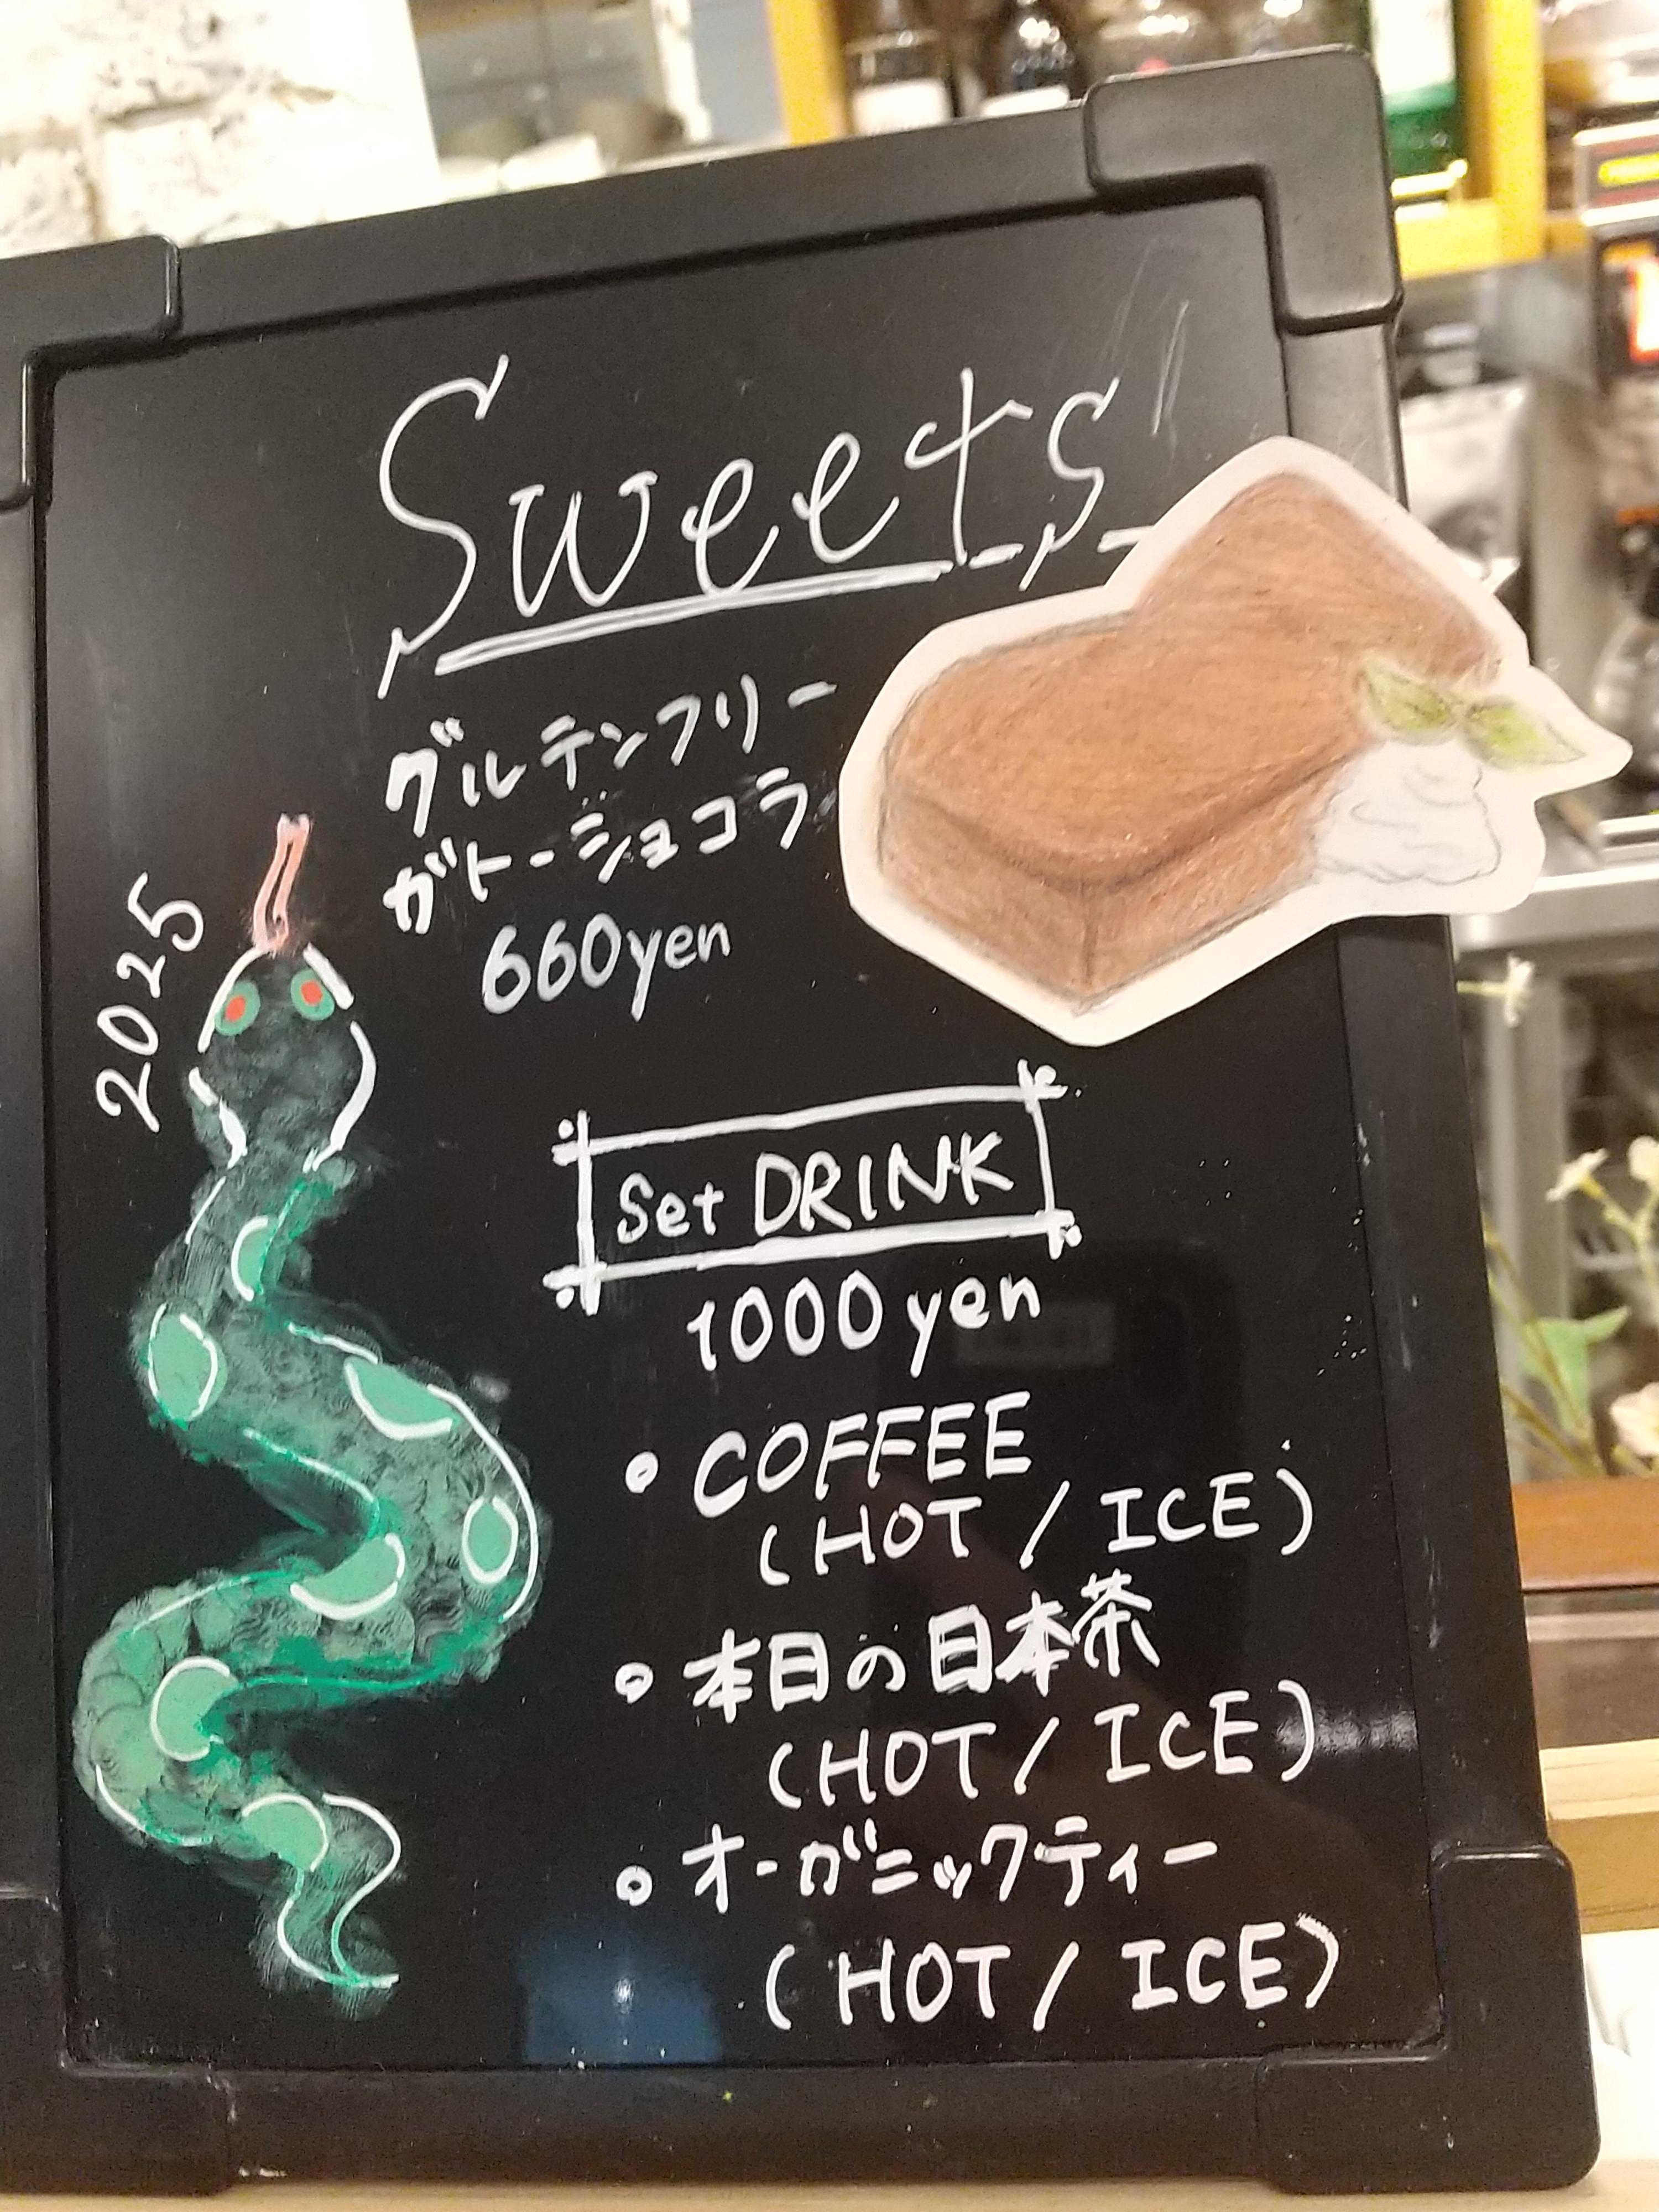 Sweets
グルテンフリー
ガトーショコラ
660yen
2025
Set DRINK
1000yen
• COFFEE
(HOT / ICE)
• 本日の日本茶
(HOT / ICE)
• オーガニックティー
(HOT / ICE)